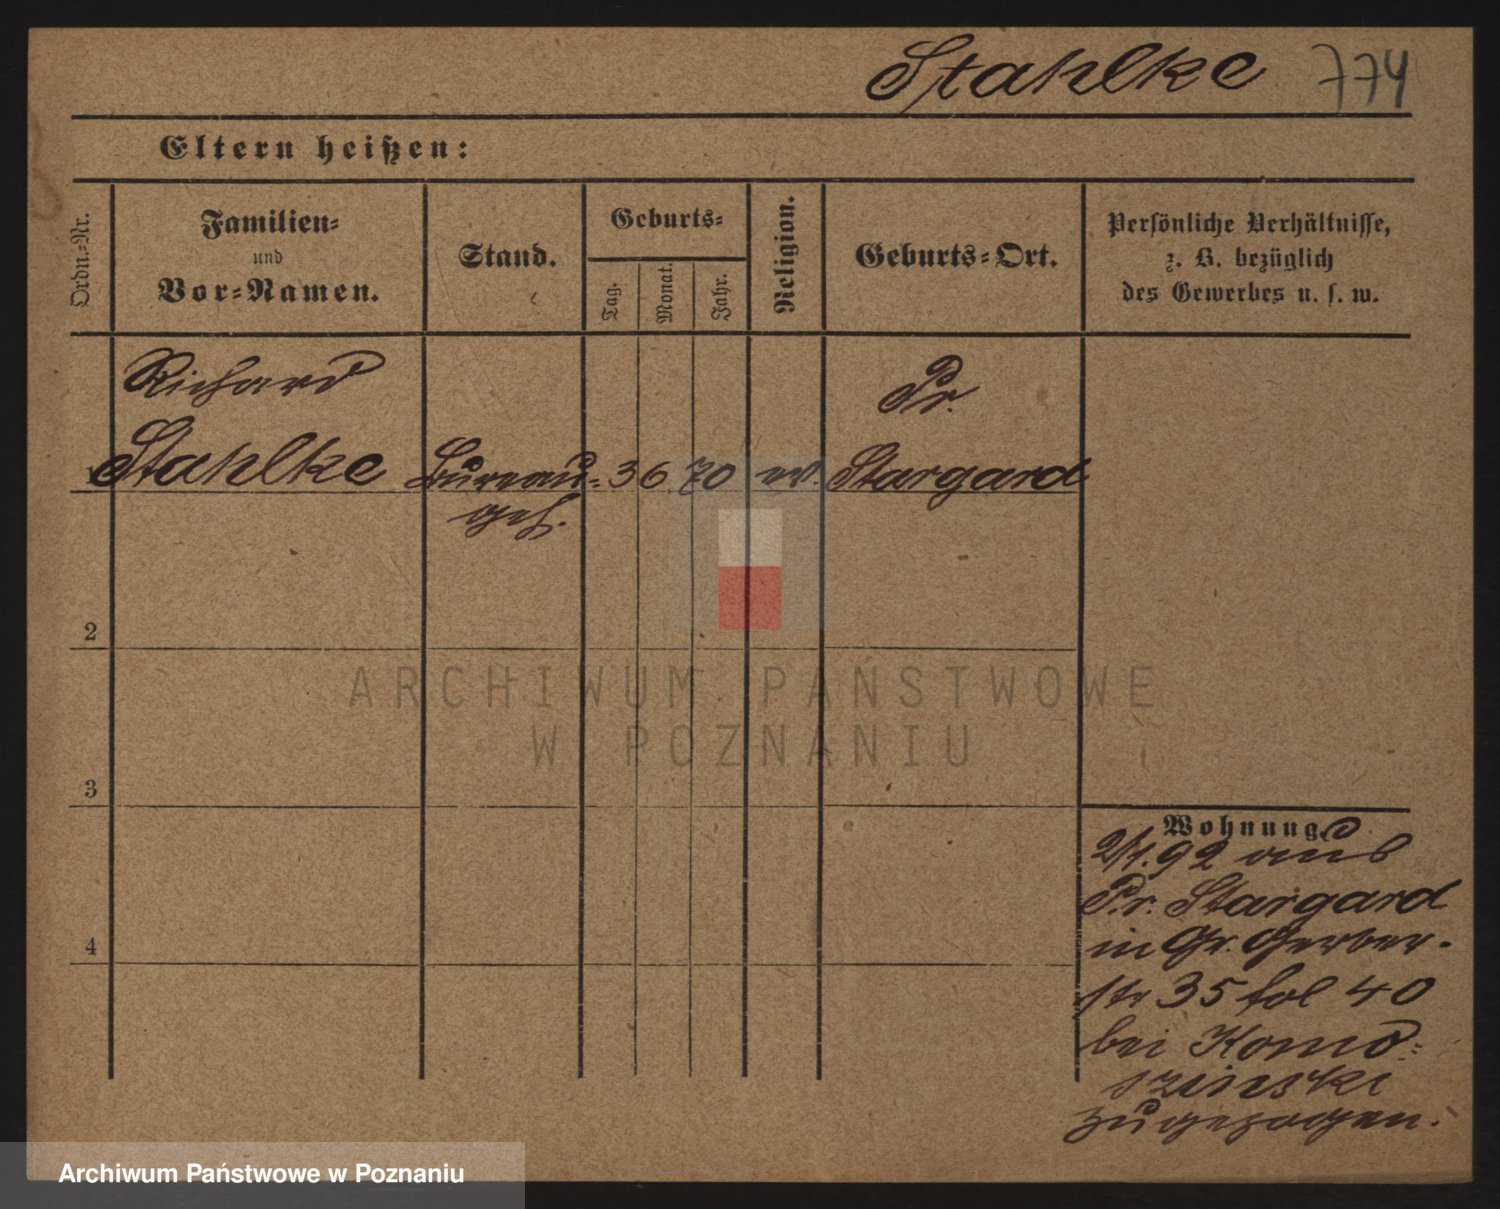 Stahlke 774
Eltern heißen:
Ordn.=Nr.
Familien=
und
Vor=Namen.
Stand.
Geburts=
Tag.
Monat.
Jahr.
Religion.
Geburts=Ort.
Persönliche Verhältnisse,
z. B. bezüglich
des Gewerbes u. s. w.
Richard
Stahlke
Bureau=
geh.
3 6 70 ev.
Pr.
Stargard
2
3
4
Wohnung
2/1.92 aus
Pr. Stargard
in Gr. Gerber-
str 35 fol 40
bei
zugezogen.
ARCHIWUM PAŃSTWOWE
W POZNANIU
Archiwum Państwowe w Poznaniu